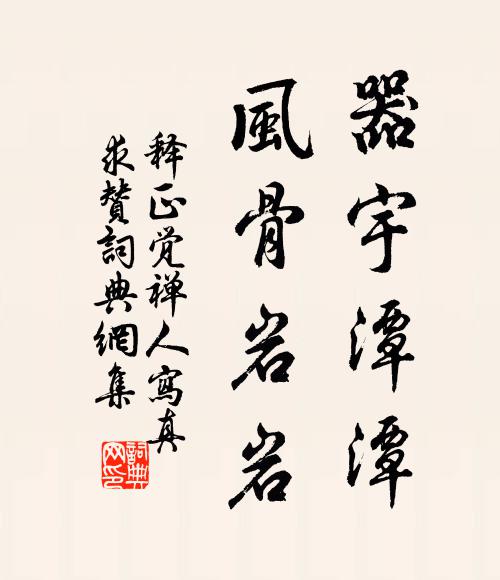 器宇潭潭
風骨岩岩
释正覚禅人寫真
求贊詞典網集
詞典网印